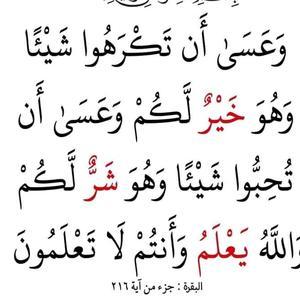 وَعَسَىٰ أَن تَكْرَهُوا شَيْئًا
وَهُوَ خَيْرٌ لَّكُمْ وَعَسَىٰ أَن
تُحِبُّوا شَيْئًا وَهُوَ شَرٌّ لَّكُمْ
وَاللَّهُ يَعْلَمُ وَأَنتُمْ لَا تَعْلَمُونَ
البقرة : جزء من آية ٢١٦